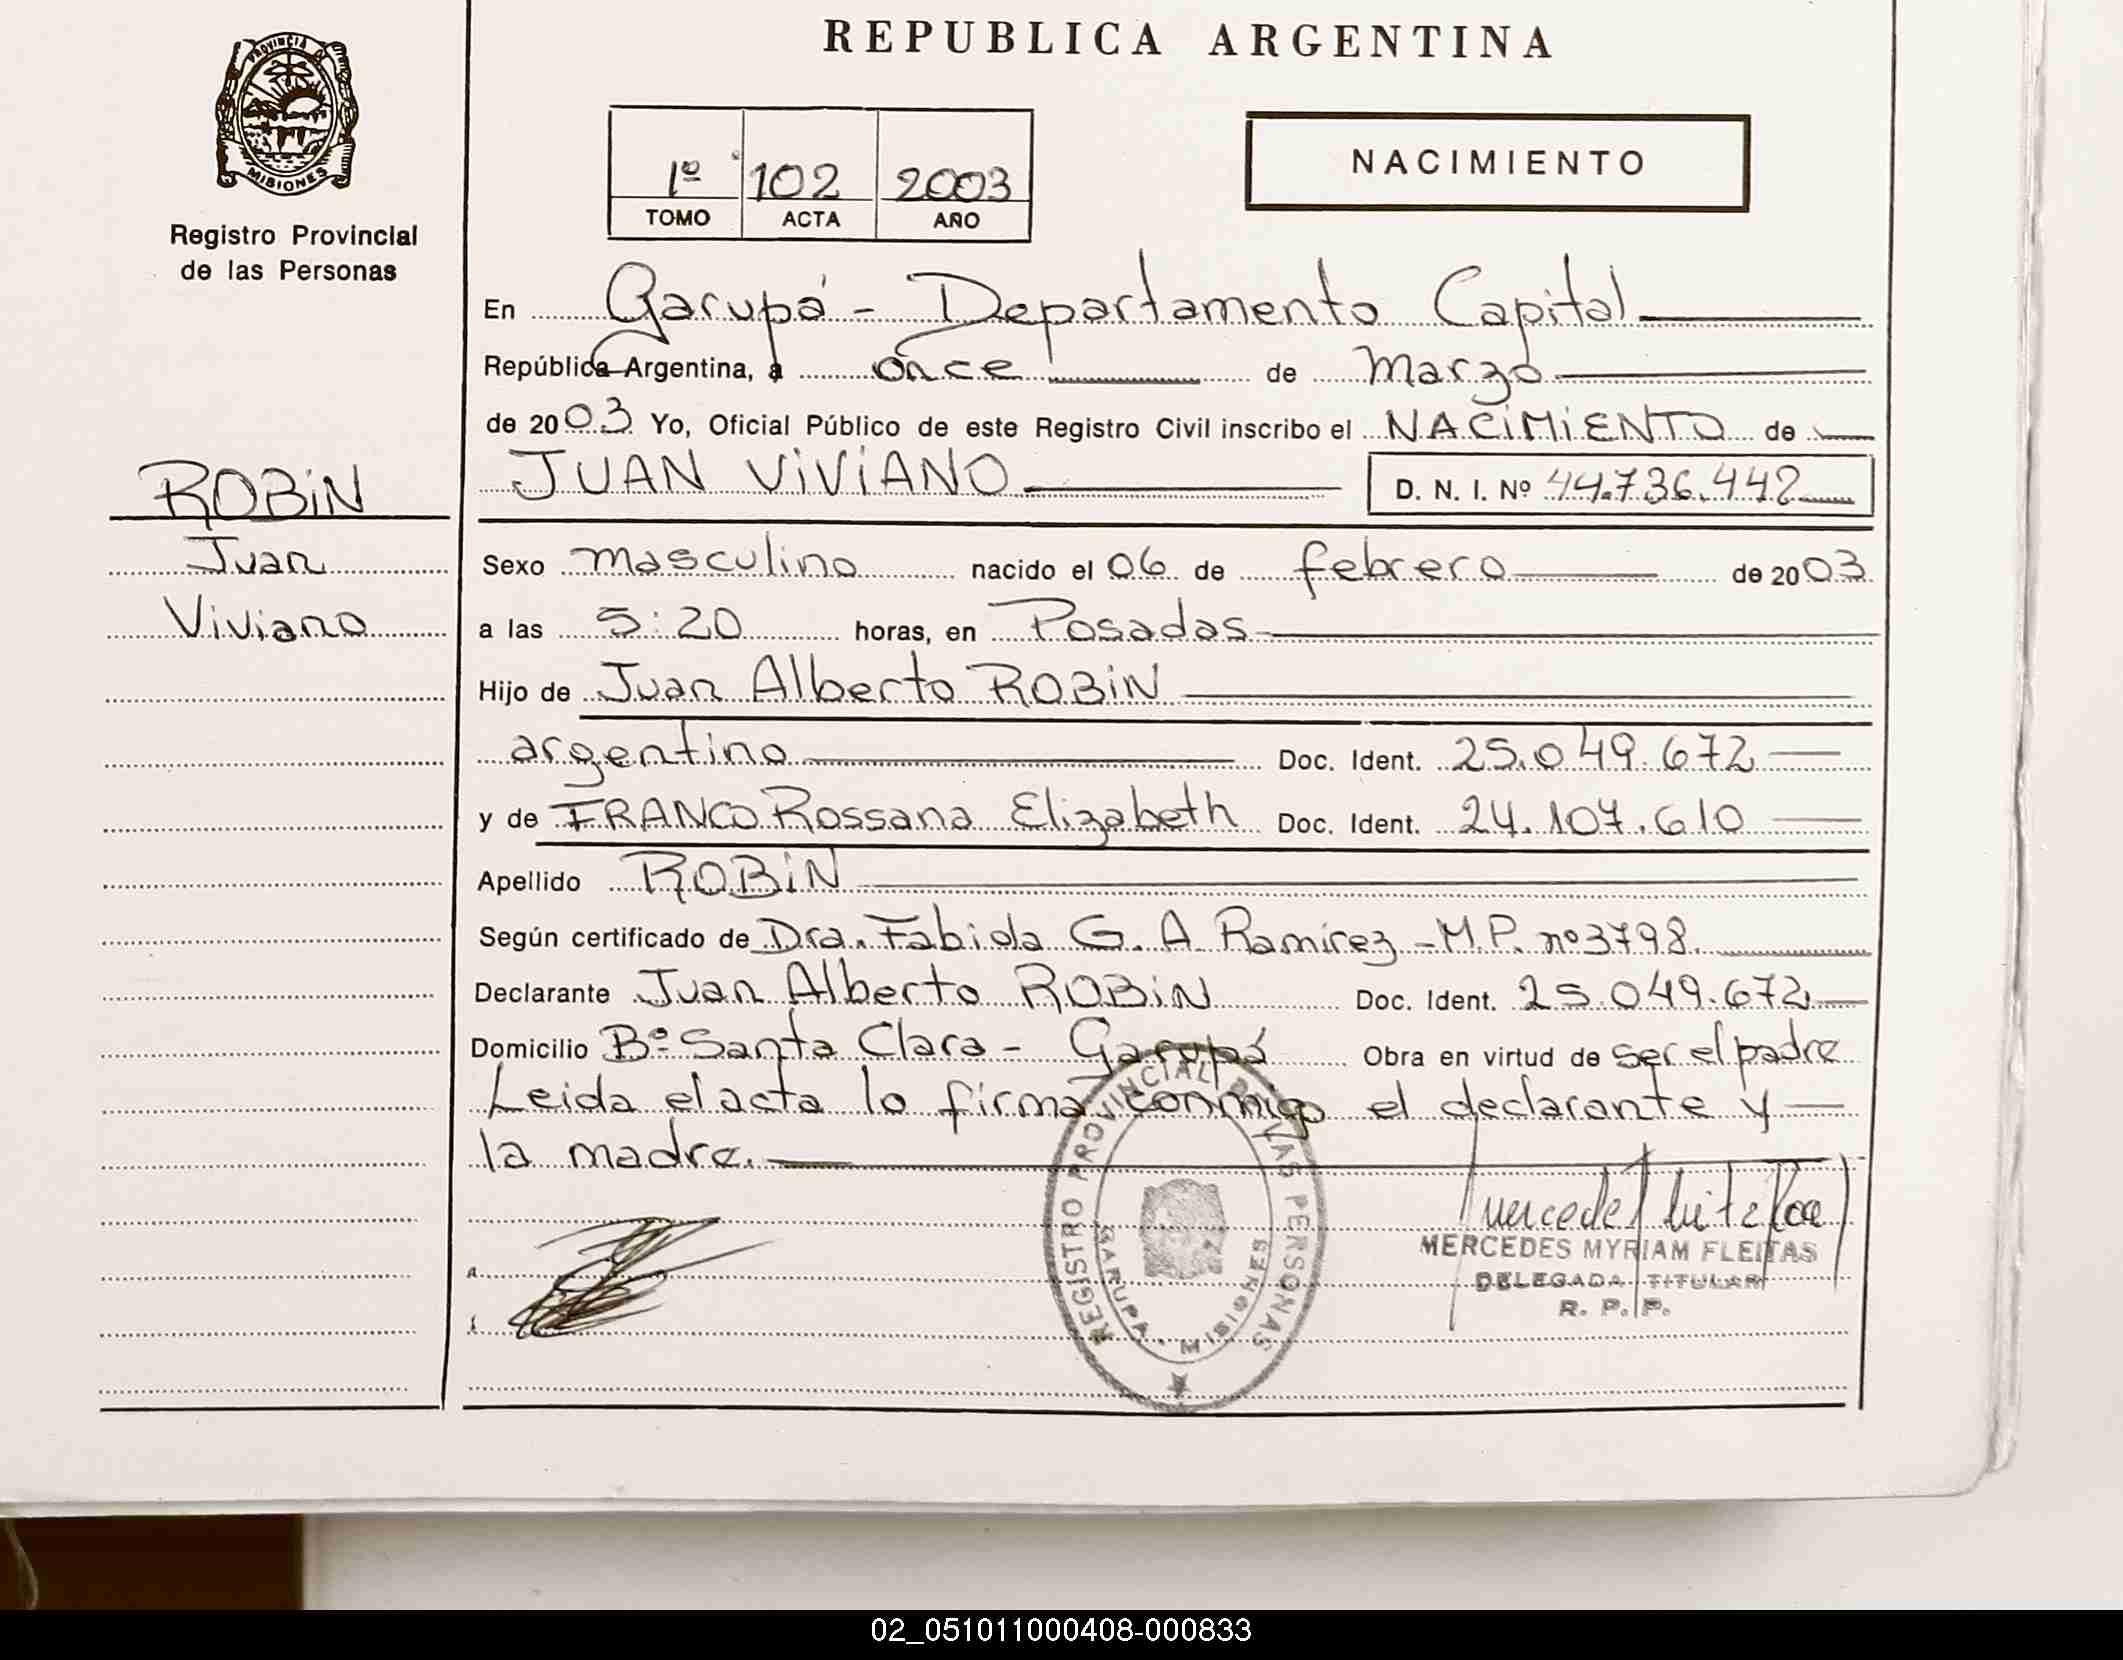 REPUBLICA ARGENTINA
PROVINCIA DE
MISIONES
Registro Provincial
de las Personas
1º 102 2003
TOMO ACTA AÑO
NACIMIENTO
En Garupá - Departamento Capital
República Argentina, a once de marzo
de 2003 Yo, Oficial Público de este Registro Civil inscribo el NACIMIENTO de
JUAN VIVIANO D. N. I. Nº 44.736.442
ROBIN
Juan
Viviano
Sexo masculino nacido el 06 de febrero de 2003
a las 5:20 horas, en Posadas
Hijo de Juan Alberto ROBIN
argentino Doc. Ident. 25.049.672
y de FRANCO Rossana Elizabeth Doc. Ident. 24.107.610
Apellido ROBIN
Según certificado de Dra. Fabiola G. A Ramirez - M.P. nº 3798
Declarante Juan Alberto ROBIN Doc. Ident. 25.049.672
Domicilio Bº Santa Clara - Garupá Obra en virtud de ser el padre
Leida el acta lo firma conmigo el declarante y
la madre.
REGISTRO PROVINCIAL DE LAS PERSONAS
GARUPA - MISIONES
MERCEDES MYRIAM FLEITAS
DELEGADA TITULAR
R. P. P.
02_051011000408-000833